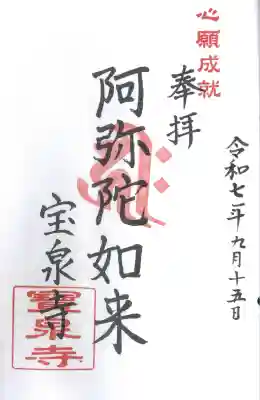 心願成就
奉拝
令和七年九月十五日
阿弥陀如来
宝泉寺
寳泉寺